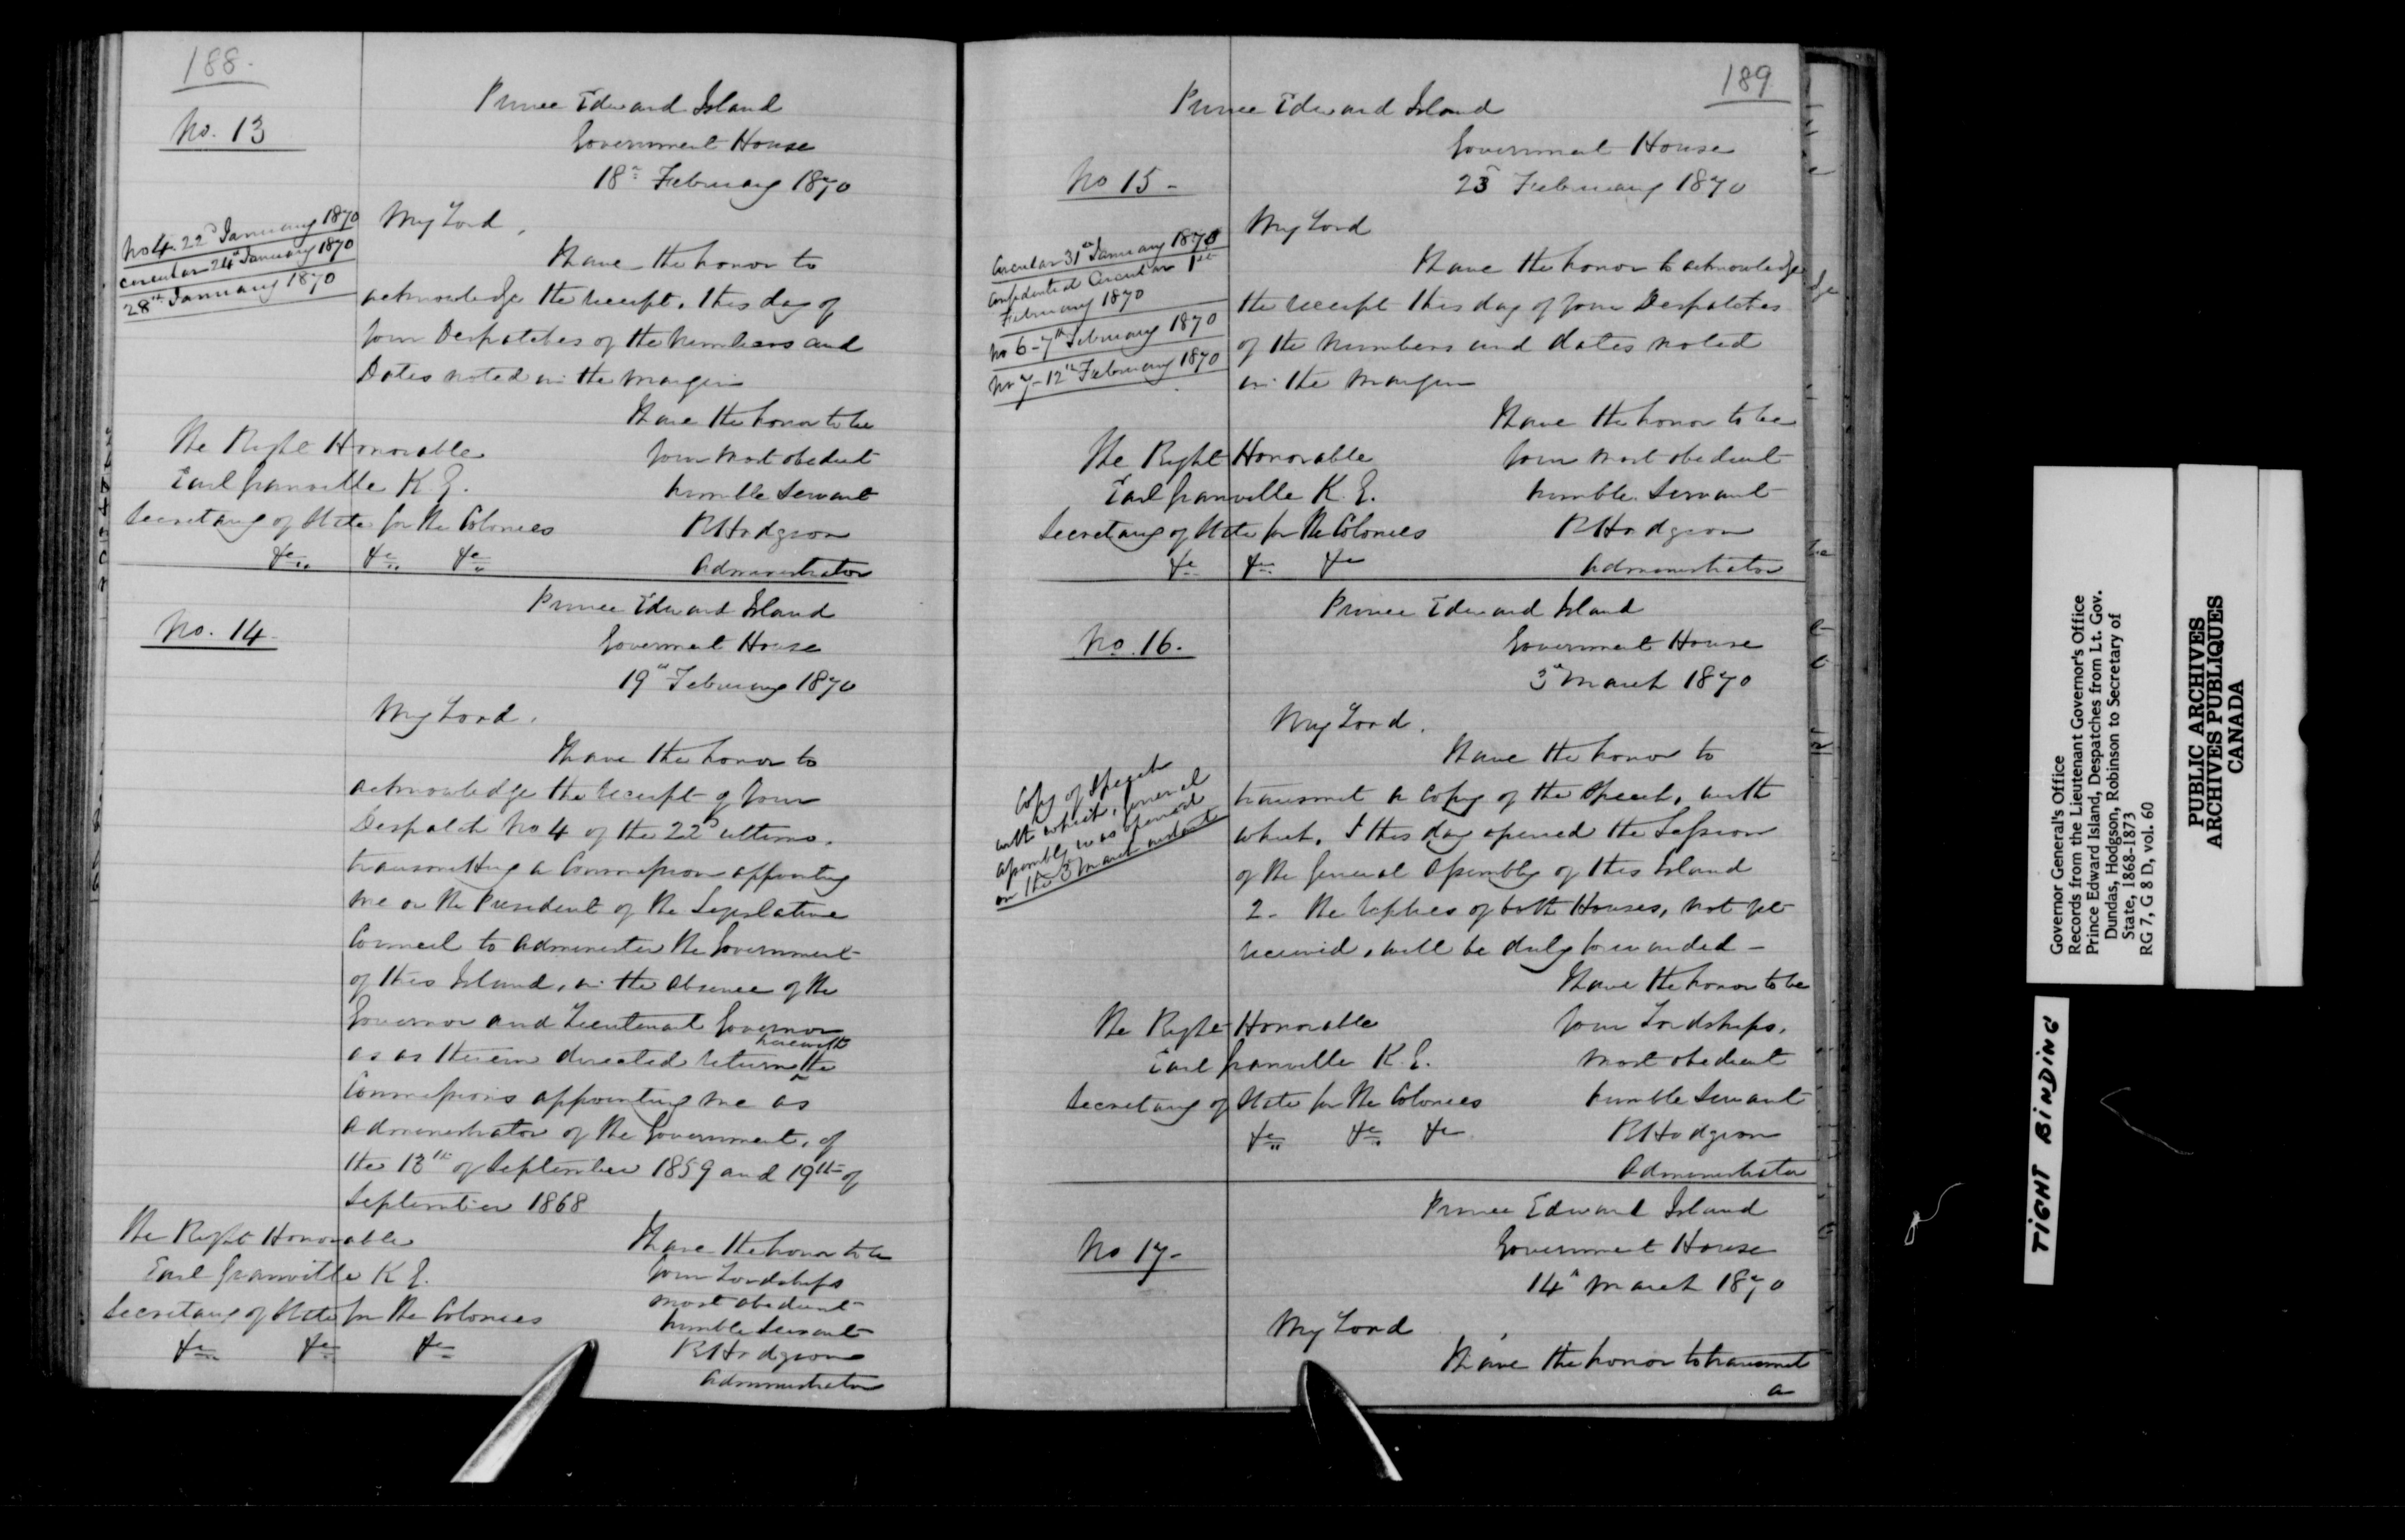 188.
No. 13
Prince Edward Island
Government House
18th February 1870
No 4. 22d January 1870
circular 24th January 1870
28th January 1870
My Lord,
I have the honor to
acknowledge the receipt, this day of
your Despatches of the Numbers and
Dates noted in the margin
I have the honor to be
Your most obedient
humble Servant
R Hodgson
Administrator
The Right Honorable
Earl Granville K.G.
Secretary of State for the Colonies
&c &c &c
No. 14
Prince Edward Island
Government House
19th February 1870
My Lord,
I have the honor to
acknowledge the receipt of your
Despatch No 4 of the 22d ultimo,
transmitting a Commission appointing
me or the President of the Legislative
Council to administer the Government
of this Island, in the absence of the
Governor and Lieutenant Governor
herewith
as as therein directed return the
Commissions appointing me as
Administrator of the Government, of
the 13th of September 1859 and 19th of
September 1868
I have the honor to be
Your Lordships
most obedient
humble Servant
R Hodgson
Administrator
The Right Honorable
Earl Granville K G.
Secretary of State for the Colonies
&c &c &c
189
Prince Edward Island
Government House
23d February 1870
No 15 -
Circular 31st January 1870
Confidential Circular 1st
February 1870
No 6 - 7th February 1870
No 7 - 12th February 1870
My Lord
I have the honor to acknowledge
the receipt this day of your Despatches
of the Numbers and dates noted
in the margin
I have the honor to be
Your most obedient
humble Servant
R Hodgson
Administrator
The Right Honorable
Earl Granville K.G.
Secretary of State for the Colonies
&c &c &c
Prince Edward Island
No. 16.
Government House
3d March 1870
My Lord,
Copy of Speech
with which, General
Assembly was opened
on the 3d March instant
I have the honor to
transmit a copy of the Speech, with
which, I this day opened the Session
of the General Assembly of this Island
2 - The replies of both Houses, not yet
received, will be duly forwarded -
I have the honor to be
Your Lordships,
most obedient
humble Servant
R Hodgson
Administrator
The Right Honorable
Earl Granville K.G.
Secretary of State for the Colonies
&c &c &c
Prince Edward Island
No 17 -
Government House
14th March 1870
My Lord
I have the honor to transmit
a
Governor General's Office
Records from the Lieutenant Governor's Office
Prince Edward Island, Despatches from Lt. Gov.
Dundas, Hodgson, Robinson to Secretary of
State, 1868-1873
RG 7, G 8 D, vol. 60
PUBLIC ARCHIVES
ARCHIVES PUBLIQUES
CANADA
TIGHT BINDING